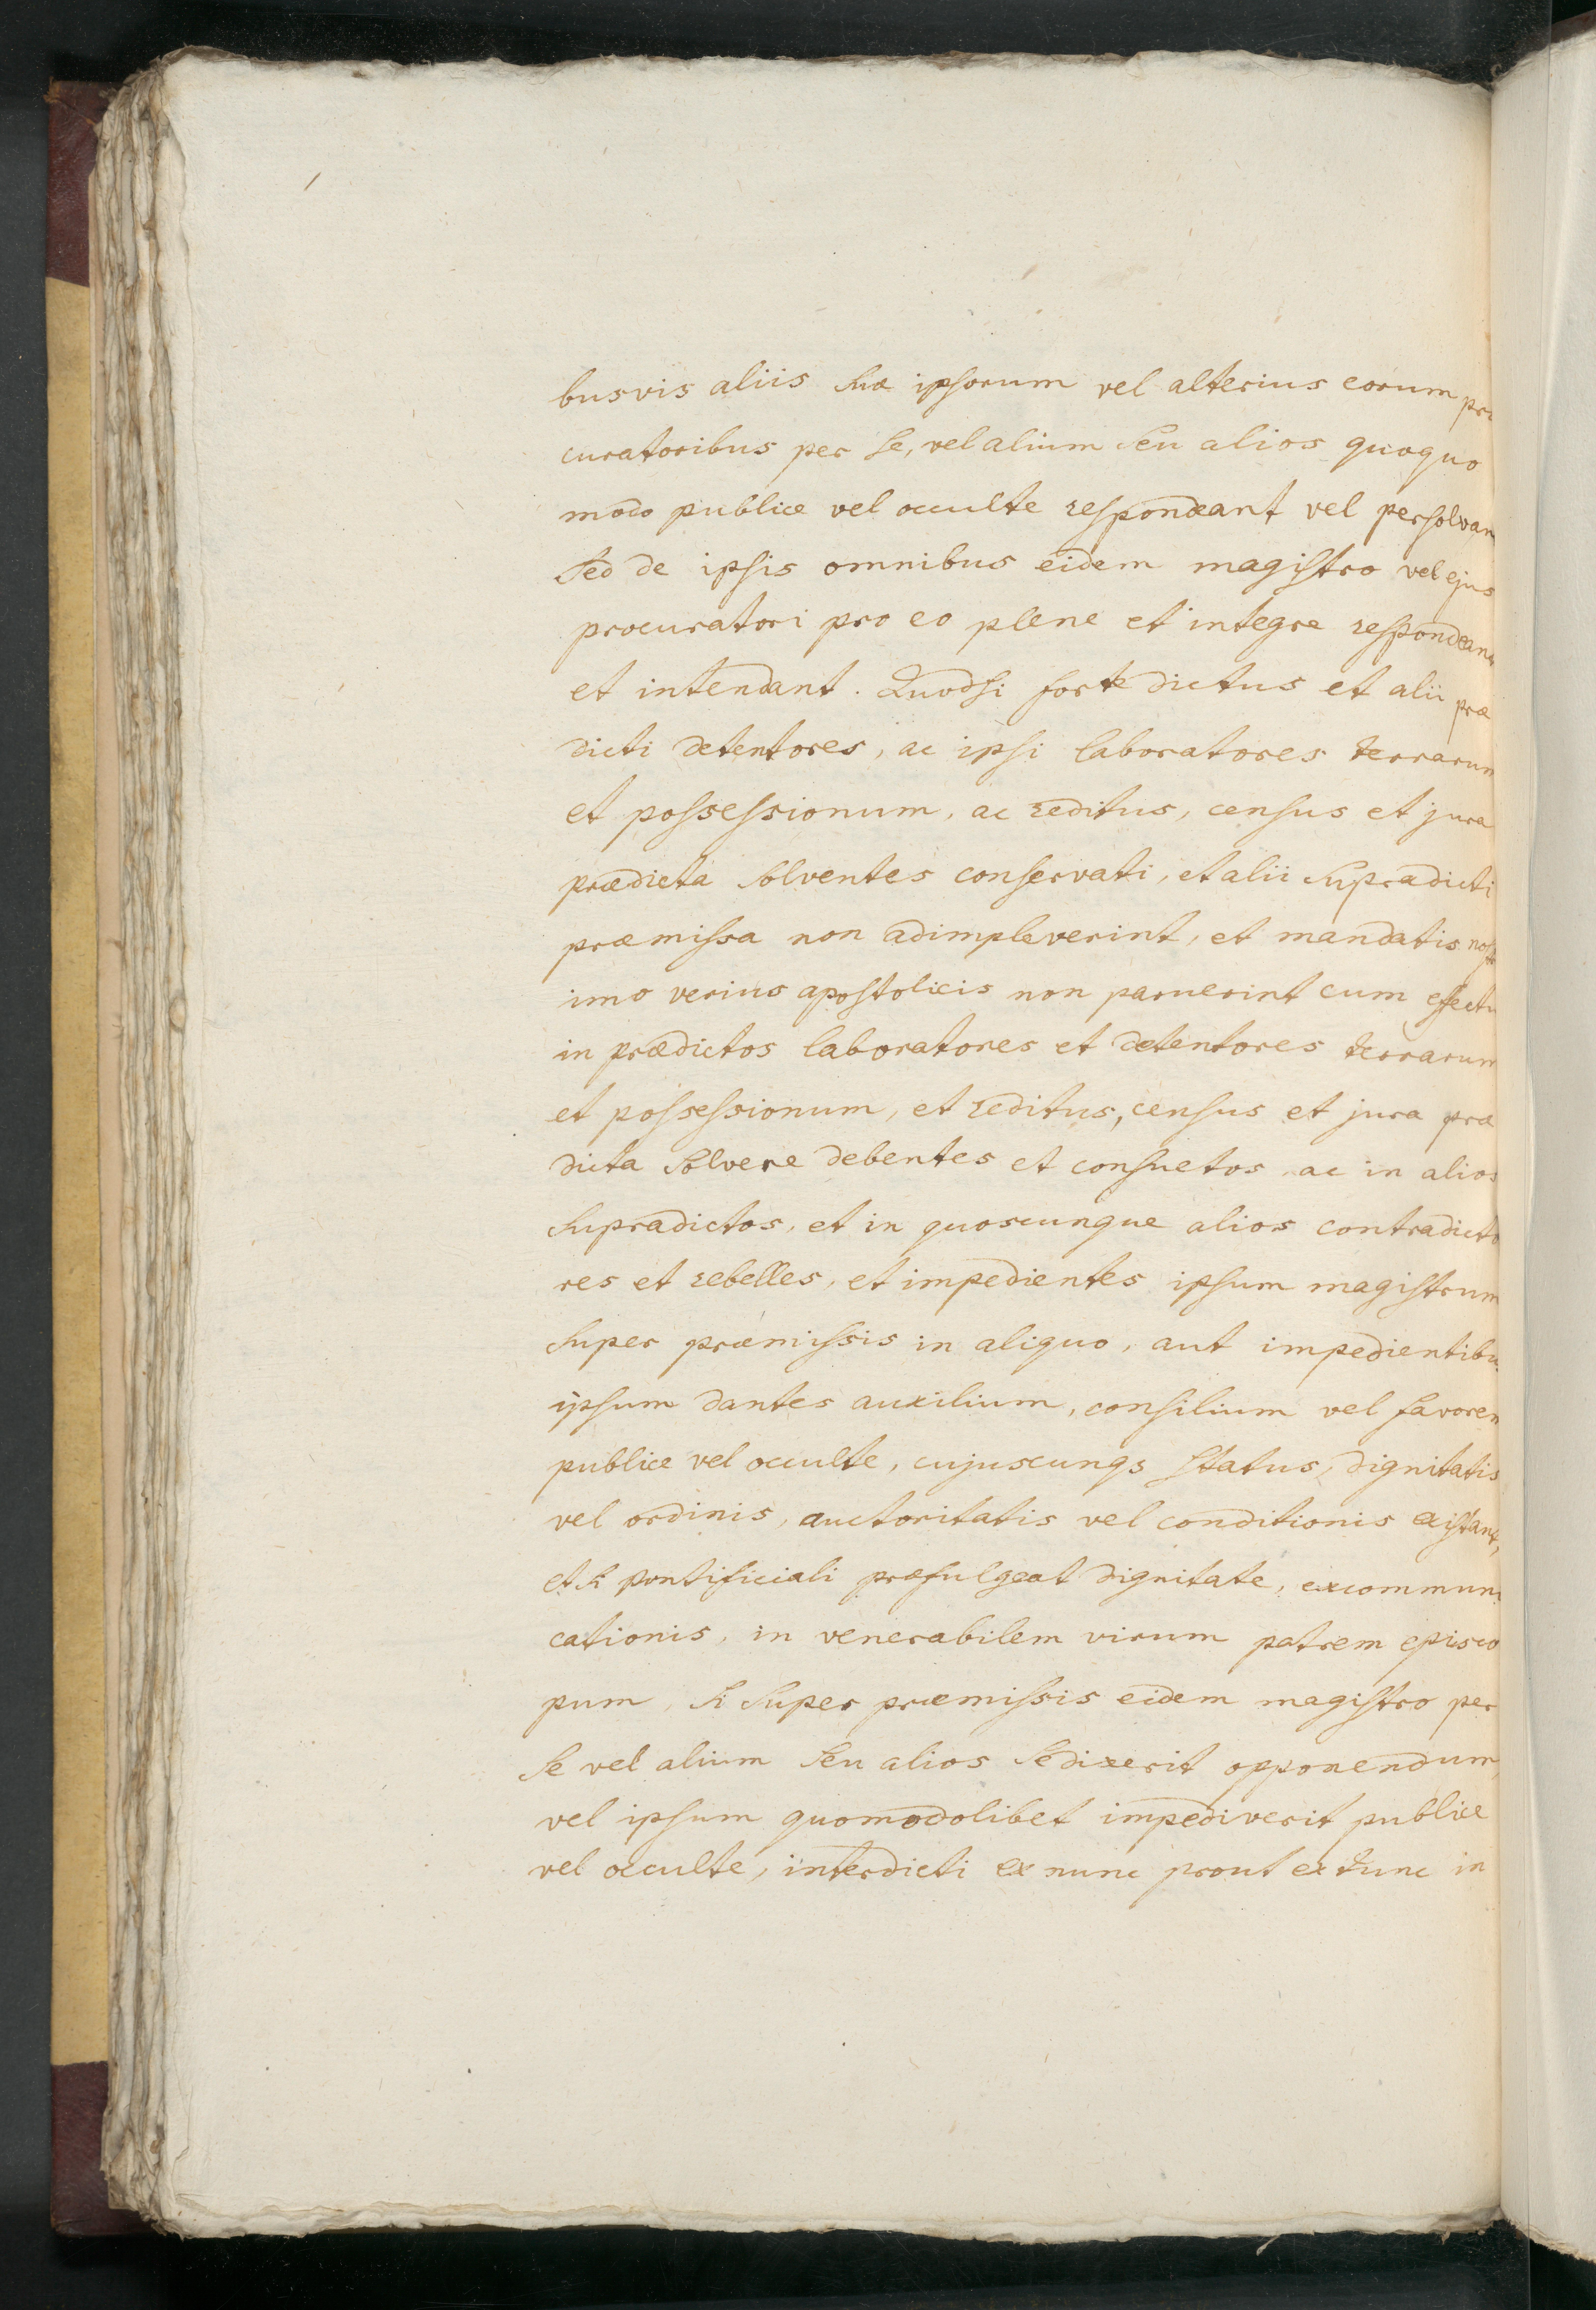 busvis aliis sivæ ipsorum vel alterius eorum pro
curatoribus per se, vel alium seu alios quoquo
modo publice vel occulte respondeant vel persolvan
sed de ipsis omnibus eidem magistro vel ejus
procuratori pro eo plene et integre respondean
et intendant. Quodsi forte dictus et alii præ
dicti detentores, ac ipsi laboratores terrarum
et possessionum, ac reditus, census et jura
prædicta solventes conservati, et alii supradicti
præmissa non adimpleverint, et mandatis nostr
imo verius apostolicis non paruerint cum effectu
in prædictos laboratores et detentores terrarum
et possessionum, et reditus, census et jura præ
dicta solvere debentes et consuetos, ac in alios
supradictos, et in quoscunque alios contradicto
res et rebelles, et impedientes ipsum magistrum
super præmissis in aliquo, aut impedientibus
ipsum dantes auxilium, consilium vel favorem
publice vel occulte, cujuscunqs status, dignitatis
vel ordinis, auctoritatis vel conditionis existant,
et si pontificiali præfulgeat dignitate, excommuni
cationis, in venerabilem virum patrem episco
pum, si super præmissis eidem magistro per
se vel alium seu alios se dixerit opponendum,
vel ipsum quomodolibet impediverit publice
vel occulte, interdicti ex nunc prout ex tunc in